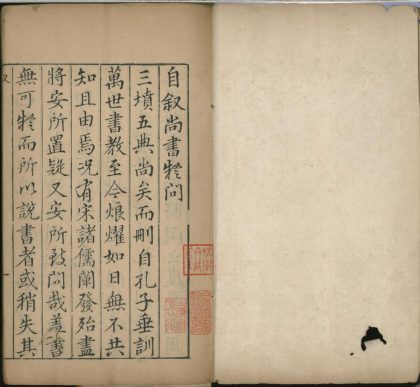 自叙尚書疑問
三墳五典尚矣而刪自孔子垂訓
萬世書教至今烺燿如日無不共
知且由焉況有宋諸儒闡發殆盡
將安所置疑又安所致問哉蓋書
無可疑而所以說書者或稍失其